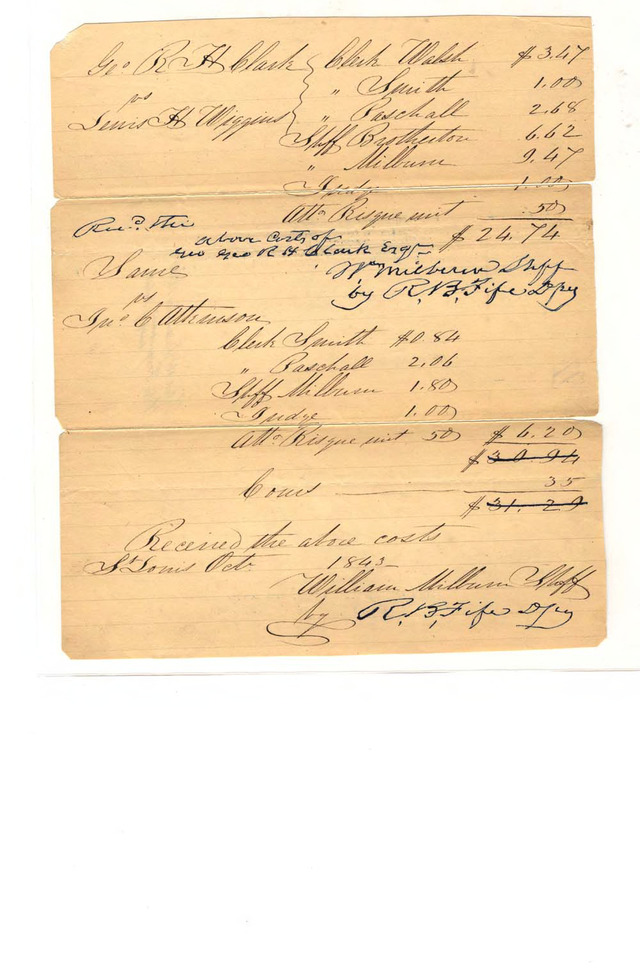 Geo R H Clark { Clerk Walsh $3.47
vs " Smith 1.00
Lewis H Wiggins " Paschall 2.68
Shff Brotherton 6.62
" Milburn 9.47
Judge 1.00
Atto Risque unit 50
$24.74
Recd the above Costs of
Geo R H Clark Esqr
Wm Milburn Shff
by R. B. Fife Dpy
Same
vs
Jno C Atkinson
Clerk Smith $0.84
" Paschall 2.06
Shff Milburn 1.80
Judge 1.00
Atto Risque unit 50 $6.20
$30.94
35
$31.29
Received the above costs
St Louis Oct 1843
William Milburn Shff
by R. B. Fife Dpy